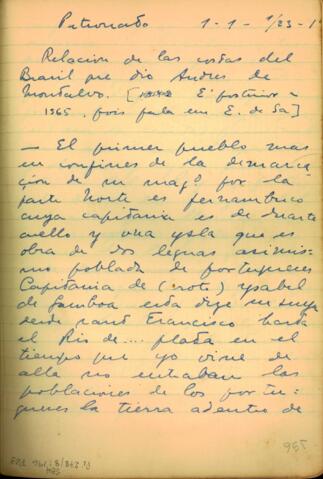 Patronado 1-1-1/23-1º
Relacion de las costas del
Brasil que dio Andres de
Montalvo. [1542 E' posterior a
1565, pois fala em E. de Sá]
— El primer pueblo mas
en confines de la demarca
çion de su magº por la
parte Norte es fernambuco
cuya capitania es de duarte
cuello y una ysla que es
obra de dos leguas asimis-
mo poblada de portugueses
Capitania de (roto) ysabel
de Gamboa esta dize ser suya
desde sant Francisco hasta
el Rio de ... plata en el
tiempo que yo vine de
alla no entraban las
poblaciones de los portu-
gueses la tierra adentro de
965